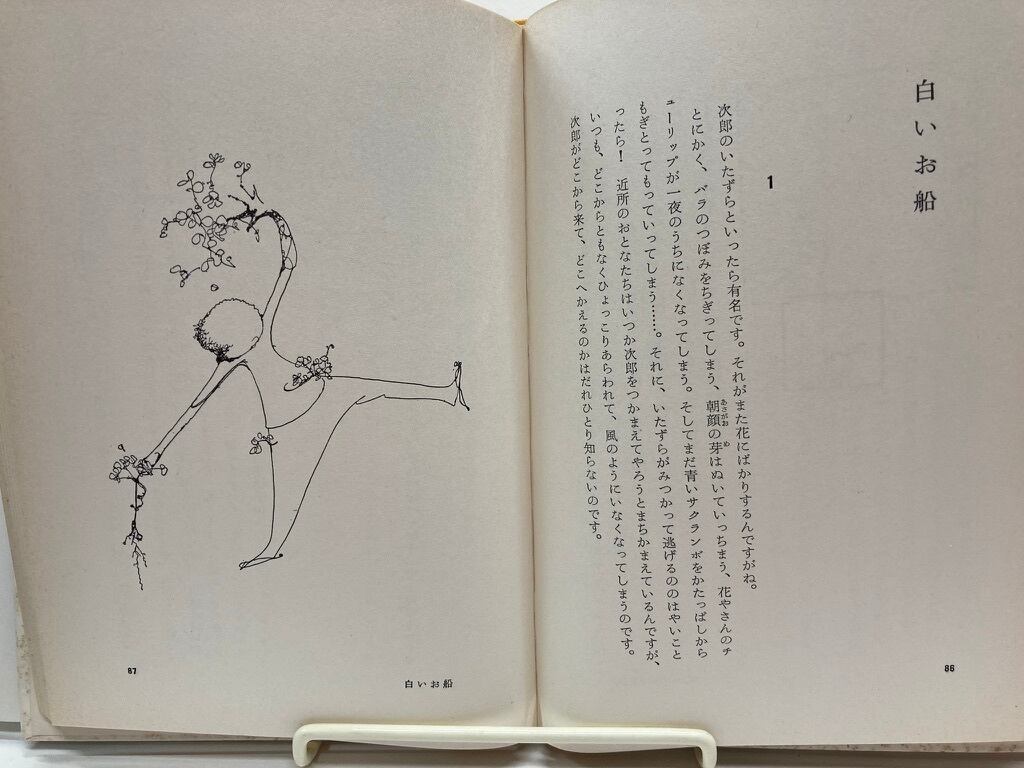 白いお船
1
次郎のいたずらといったら有名です。それがまた花にばかりするんですがね。
とにかく、バラのつぼみをちぎってしまう、朝顔の芽はぬいていっちまう、花やさんのチ
ューリップが一夜のうちになくなってしまう。そしてまだ青いサクランボをかたっぱしから
もぎとってもっていってしまう……。それに、いたずらがみつかって逃げるののはやいこと
ったら！　近所のおとなたちはいつか次郎をつかまえてやろうとまちかまえているんですが、
いつも、どこからともなくひょっこりあらわれて、風のようにいなくなってしまうのです。
次郎がどこから来て、どこへかえるのかはだれひとり知らないのです。
あさがお
め
86
白いお船
87